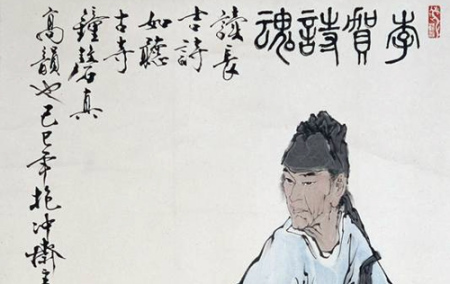 李賀詩魂
讀長
吉詩
如聽
古寺
鐘磬真
高韻也己巳年抱冲齋